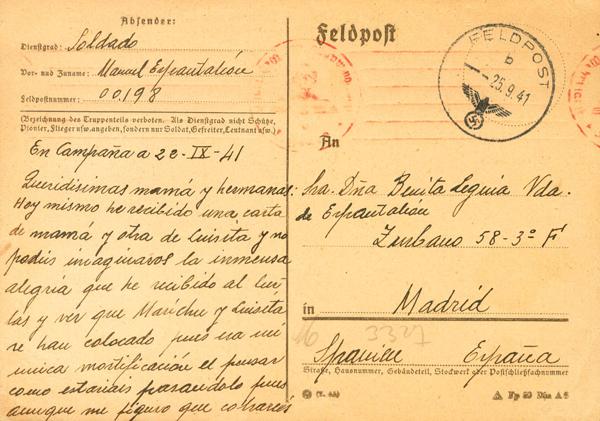 Absender:
Dienstgrad: Soldado
Vor- und Zuname: Manuel Espantaleón
Feldpostnummer: 00198
(Bezeichnung des Truppenteils verboten. Als Dienstgrad nicht Schütze,
Pionier, Flieger usw. angeben, sondern nur Soldat, Gefreiter, Leutnant usw.)
En Campaña a 22-IX-41
Queridisimas mamá y hermanas:
Hoy mismo he recibido una carta
de mamá y otra de Luisita y no
podeis imaginaros la inmensa
alegria que he recibido al
y ver que Marichu y Luisita
se han colocado pues era mi
unica mortificación el pensar
como estariais pasandolo pues
aunque me figuro que cobrareis
Feldpost
FELDPOST
b
-25.9.41
An
Sra. Dña Benita Vda.
de Espantaleón
Zurbano 58-3º F
in Madrid
16 3327
España
Straße, Hausnummer, Gebäudeteil, Stockwerk oder Postschließfachnummer
Din A 6